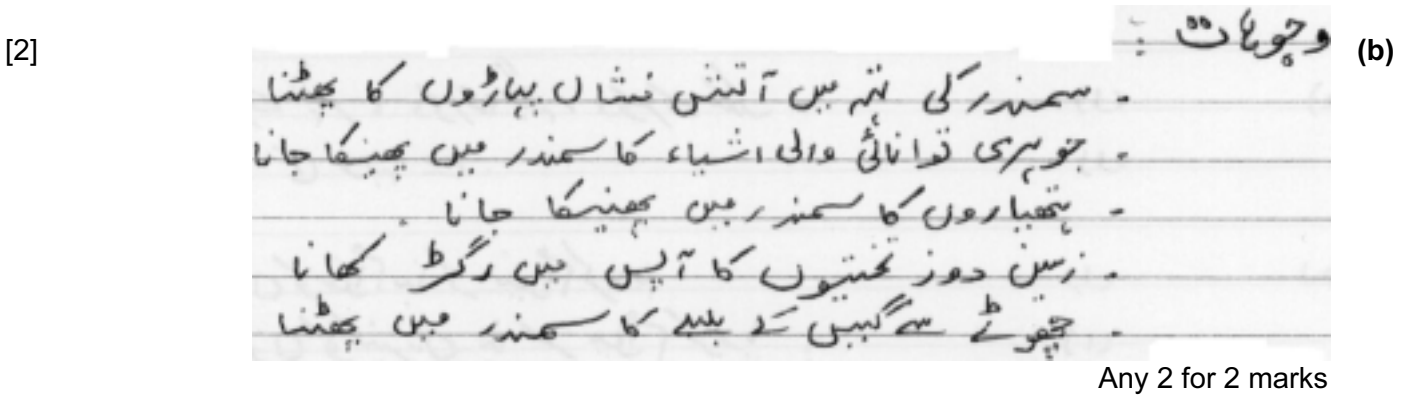 (b) وجوہات : [2]
- سمندر کی تہہ میں آتش فشاں پہاڑوں کا پھٹنا
- جوہری توانائی والی اشیاء کا سمندر میں پھینکا جانا
- ہتھیاروں کا سمندر میں پھینکا جانا
- زمین دوز تختیوں کا آپس میں رگڑ کھانا
- چھوٹے سے گیس کے بلبلے کا سمندر میں پھٹنا
Any 2 for 2 marks